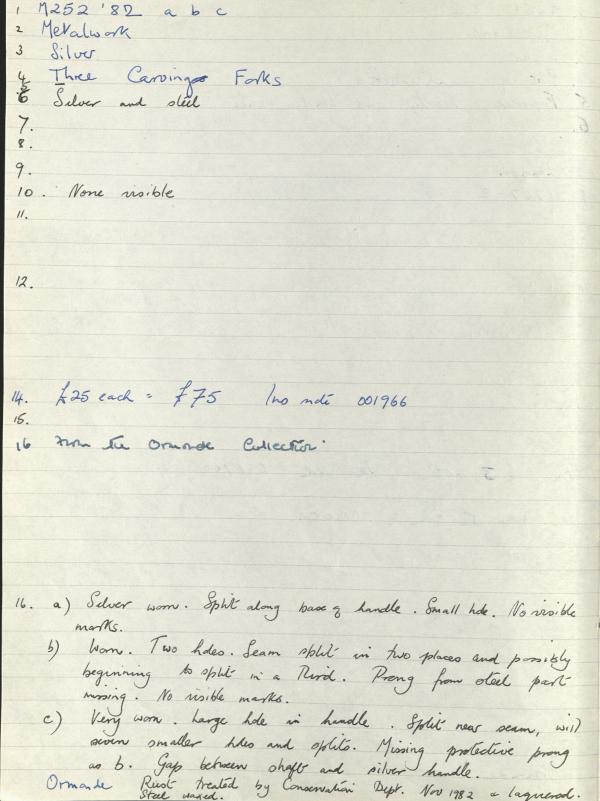 1 M252 '82 a b c
2 Metalwork
3 Silver
4 Three Carving Forks
5
6 Silver and steel
7.
8.
9.
10. None visible
11.
12.
14. £25 each = £75 Ins note 001966
15.
16 From the Ormonde Collection
16. a) Silver worn. Split along base of handle. Small hole. No visible
marks.
b) Worn. Two holes. Seam split in two places and possibly
beginning to split in a third. Prong from steel part
missing. No visible marks.
c) Very worn. Large hole in handle. Split near seam, with
seven smaller holes and splits. Missing protective prong
as b. Gap between shaft and silver handle.
Ormonde Rust treated by Conservation Dept. Nov 1982 & laquered.
Steel waxed.